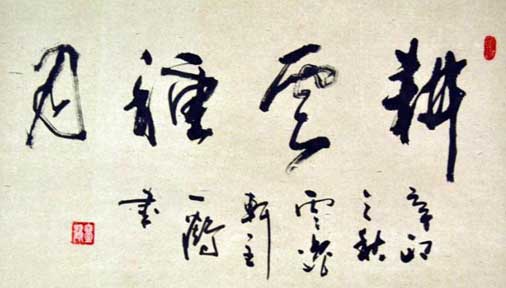 耕雲種月
辛卯
之秋
雲
軒主
一鶴
書